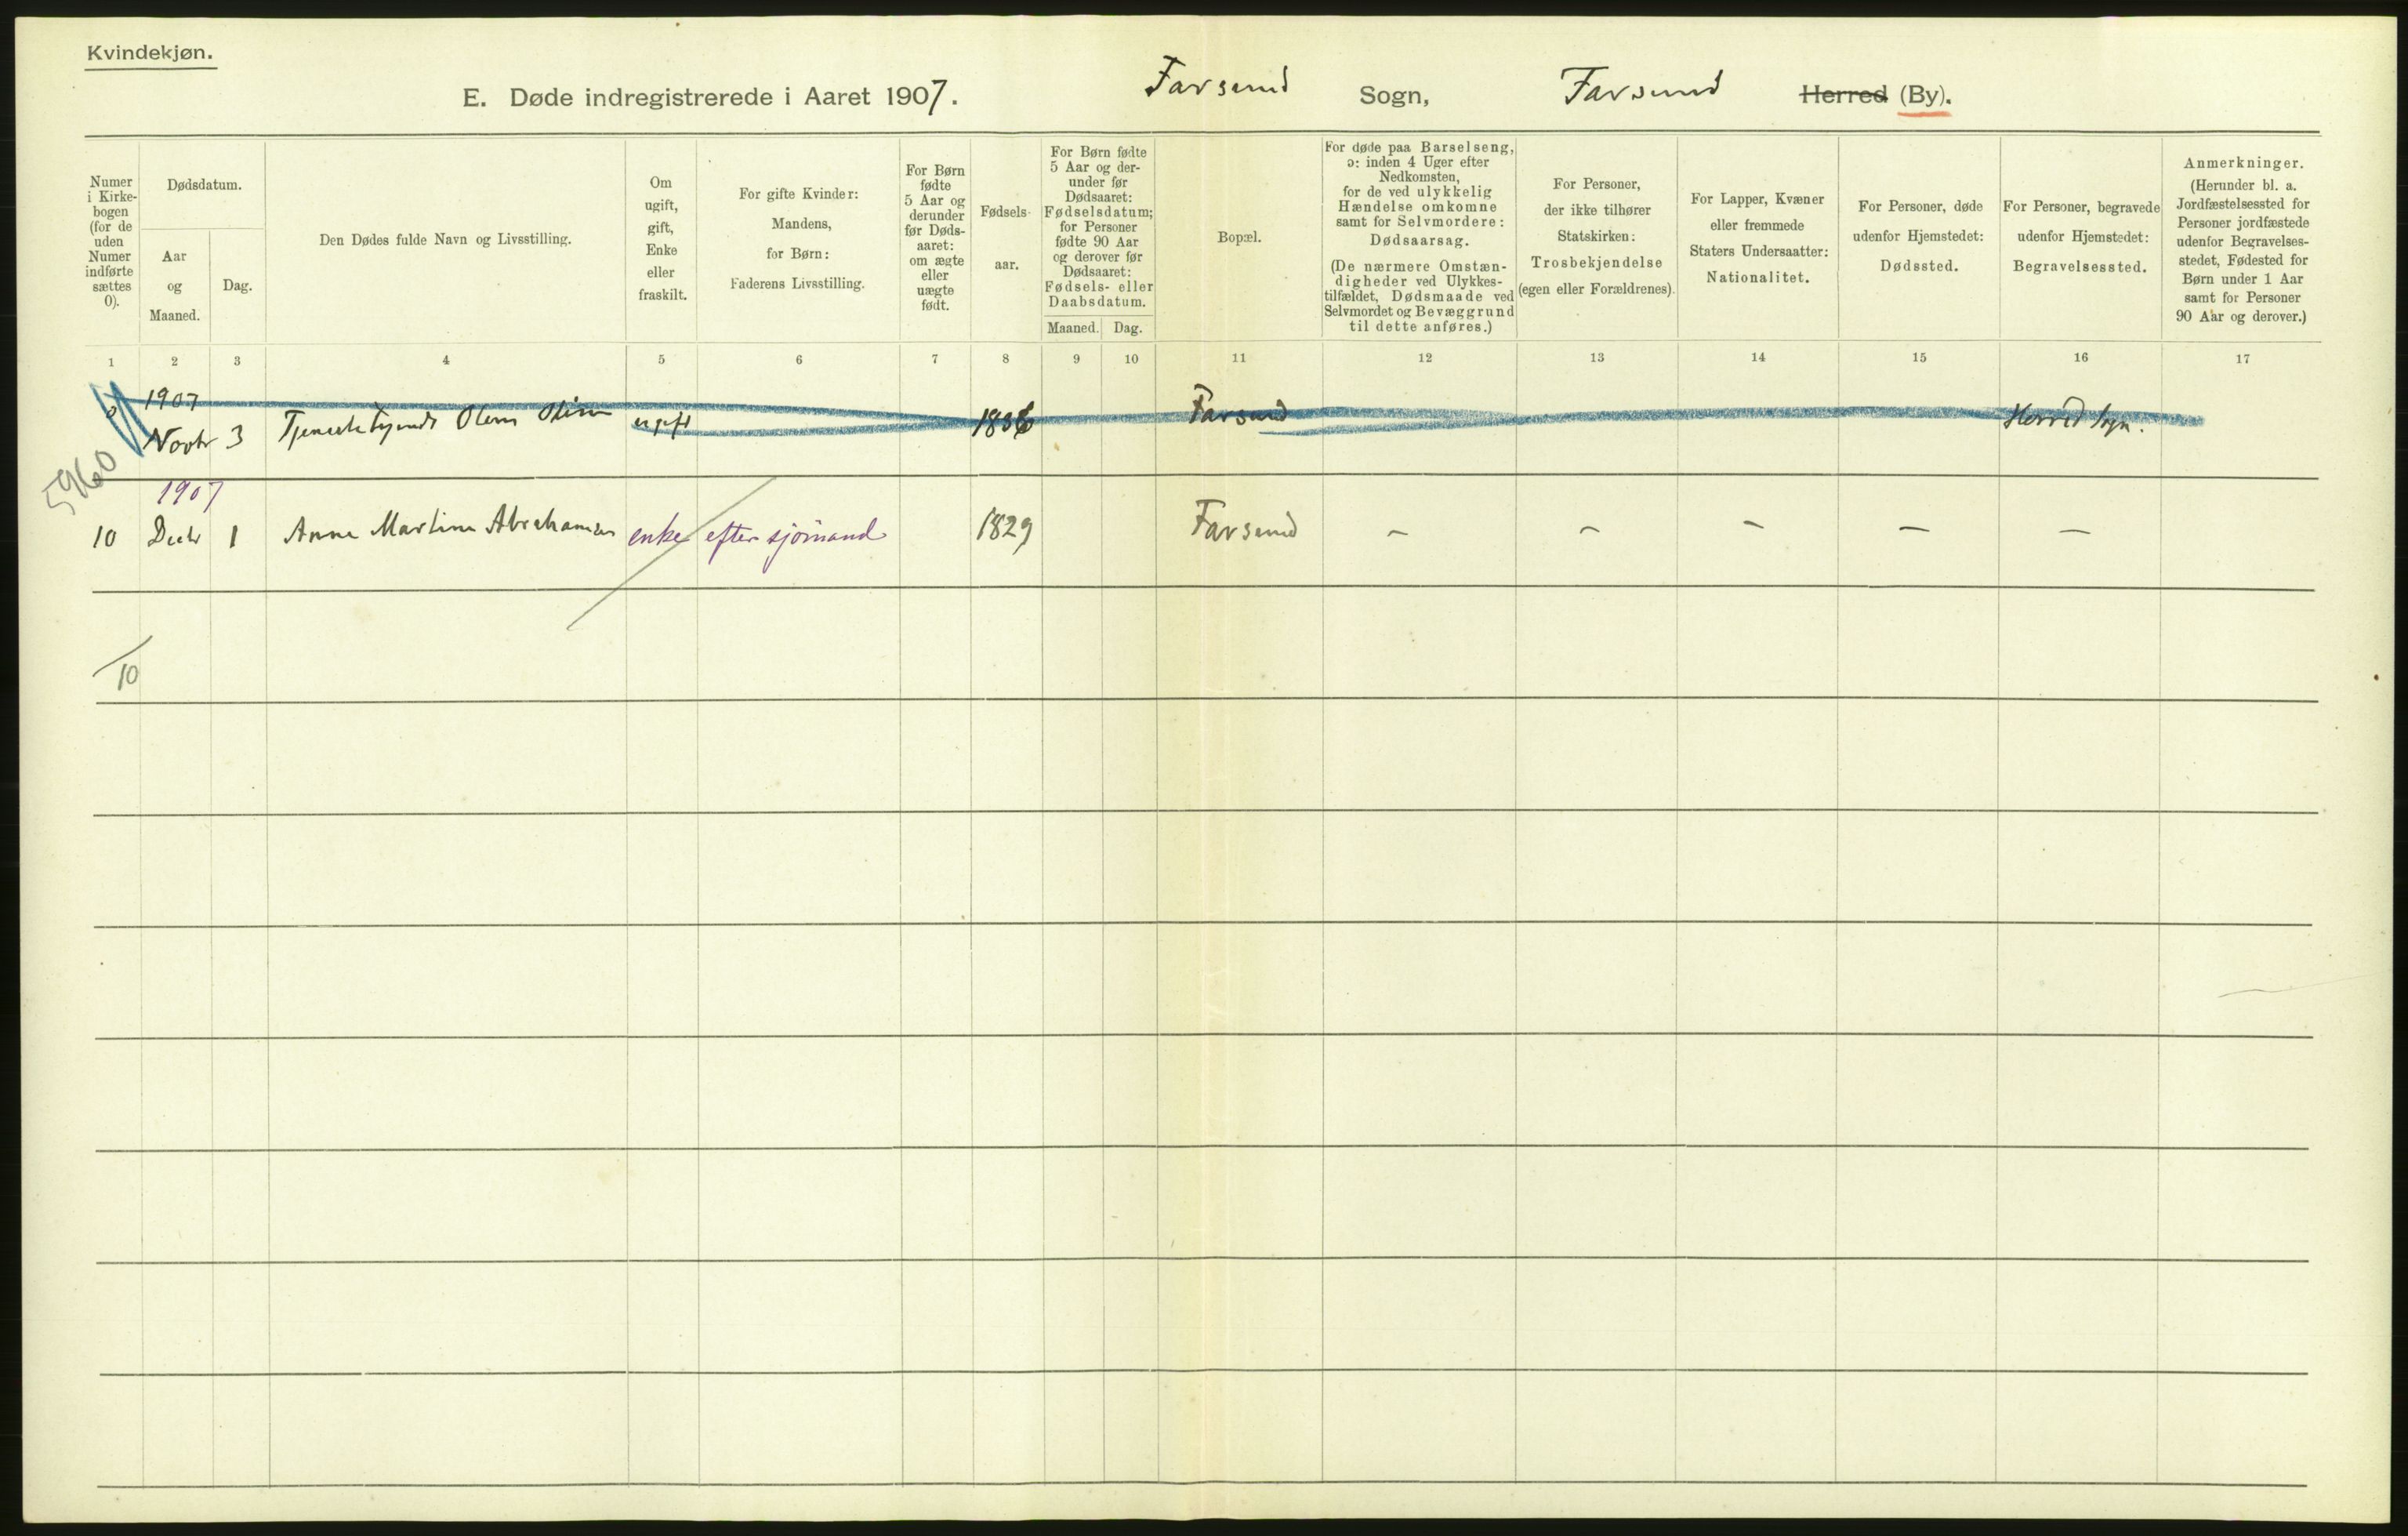 Kvindekjøn.
E. Døde indregistrerede i Aaret 1907. Farsund Sogn, Farsund Herred (By).
Numer i Kirke-
bogen
(for de
uden
Numer
indførte
sættes
0).
Dødsdatum.
Aar
og
Maaned.
Dag.
Den Dødes fulde Navn og Livsstilling.
Om
ugift,
gift,
Enke
eller
fraskilt.
For gifte Kvinder:
Mandens,
for Børn:
Faderens Livsstilling.
For Børn
fødte
5 Aar og
derunder
før Døds-
aaret:
om ægte
eller
uægte
født.
Fødsels-
aar.
For Børn fødte
5 Aar og der-
under før
Dødsaaret:
Fødselsdatum;
for Personer
fødte 90 Aar
og derover før
Dødsaaret:
Fødsels- eller
Daabsdatum.
Maaned. Dag.
Bopæl.
For døde paa Barselseng,
ɔ: inden 4 Uger efter
Nedkomsten,
for de ved ulykkelig
Hændelse omkomne
samt for Selvmordere:
Dødsaarsag.
(De nærmere Omstæn-
digheder ved Ulykkes-
tilfældet, Dødsmaade ved
Selvmordet og Bevæggrund
til dette anføres.)
For Personer,
der ikke tilhører
Statskirken:
Trosbekjendelse
(egen eller Forældrenes).
For Lapper, Kvæner
eller fremmede
Staters Undersaatter:
Nationalitet.
For Personer, døde
udenfor Hjemstedet:
Dødssted.
For Personer, begravede
udenfor Hjemstedet:
Begravelsessted.
Anmerkninger.
(Herunder bl. a.
Jordfæstelsessted for
Personer jordfæstede
udenfor Begravelses-
stedet, Fødested for
Børn under 1 Aar
samt for Personer
90 Aar og derover.)
1 2 3 4 5 6 7 8 9 10 11 12 13 14 15 16 17
1907
0 Novbr 3 Olsen ugift Farsund Herred Sogn.
5960
1907
10 Decbr 1 Anne Martine Abrahamsen enke efter sjømand 1829 Farsund – – – – –
10